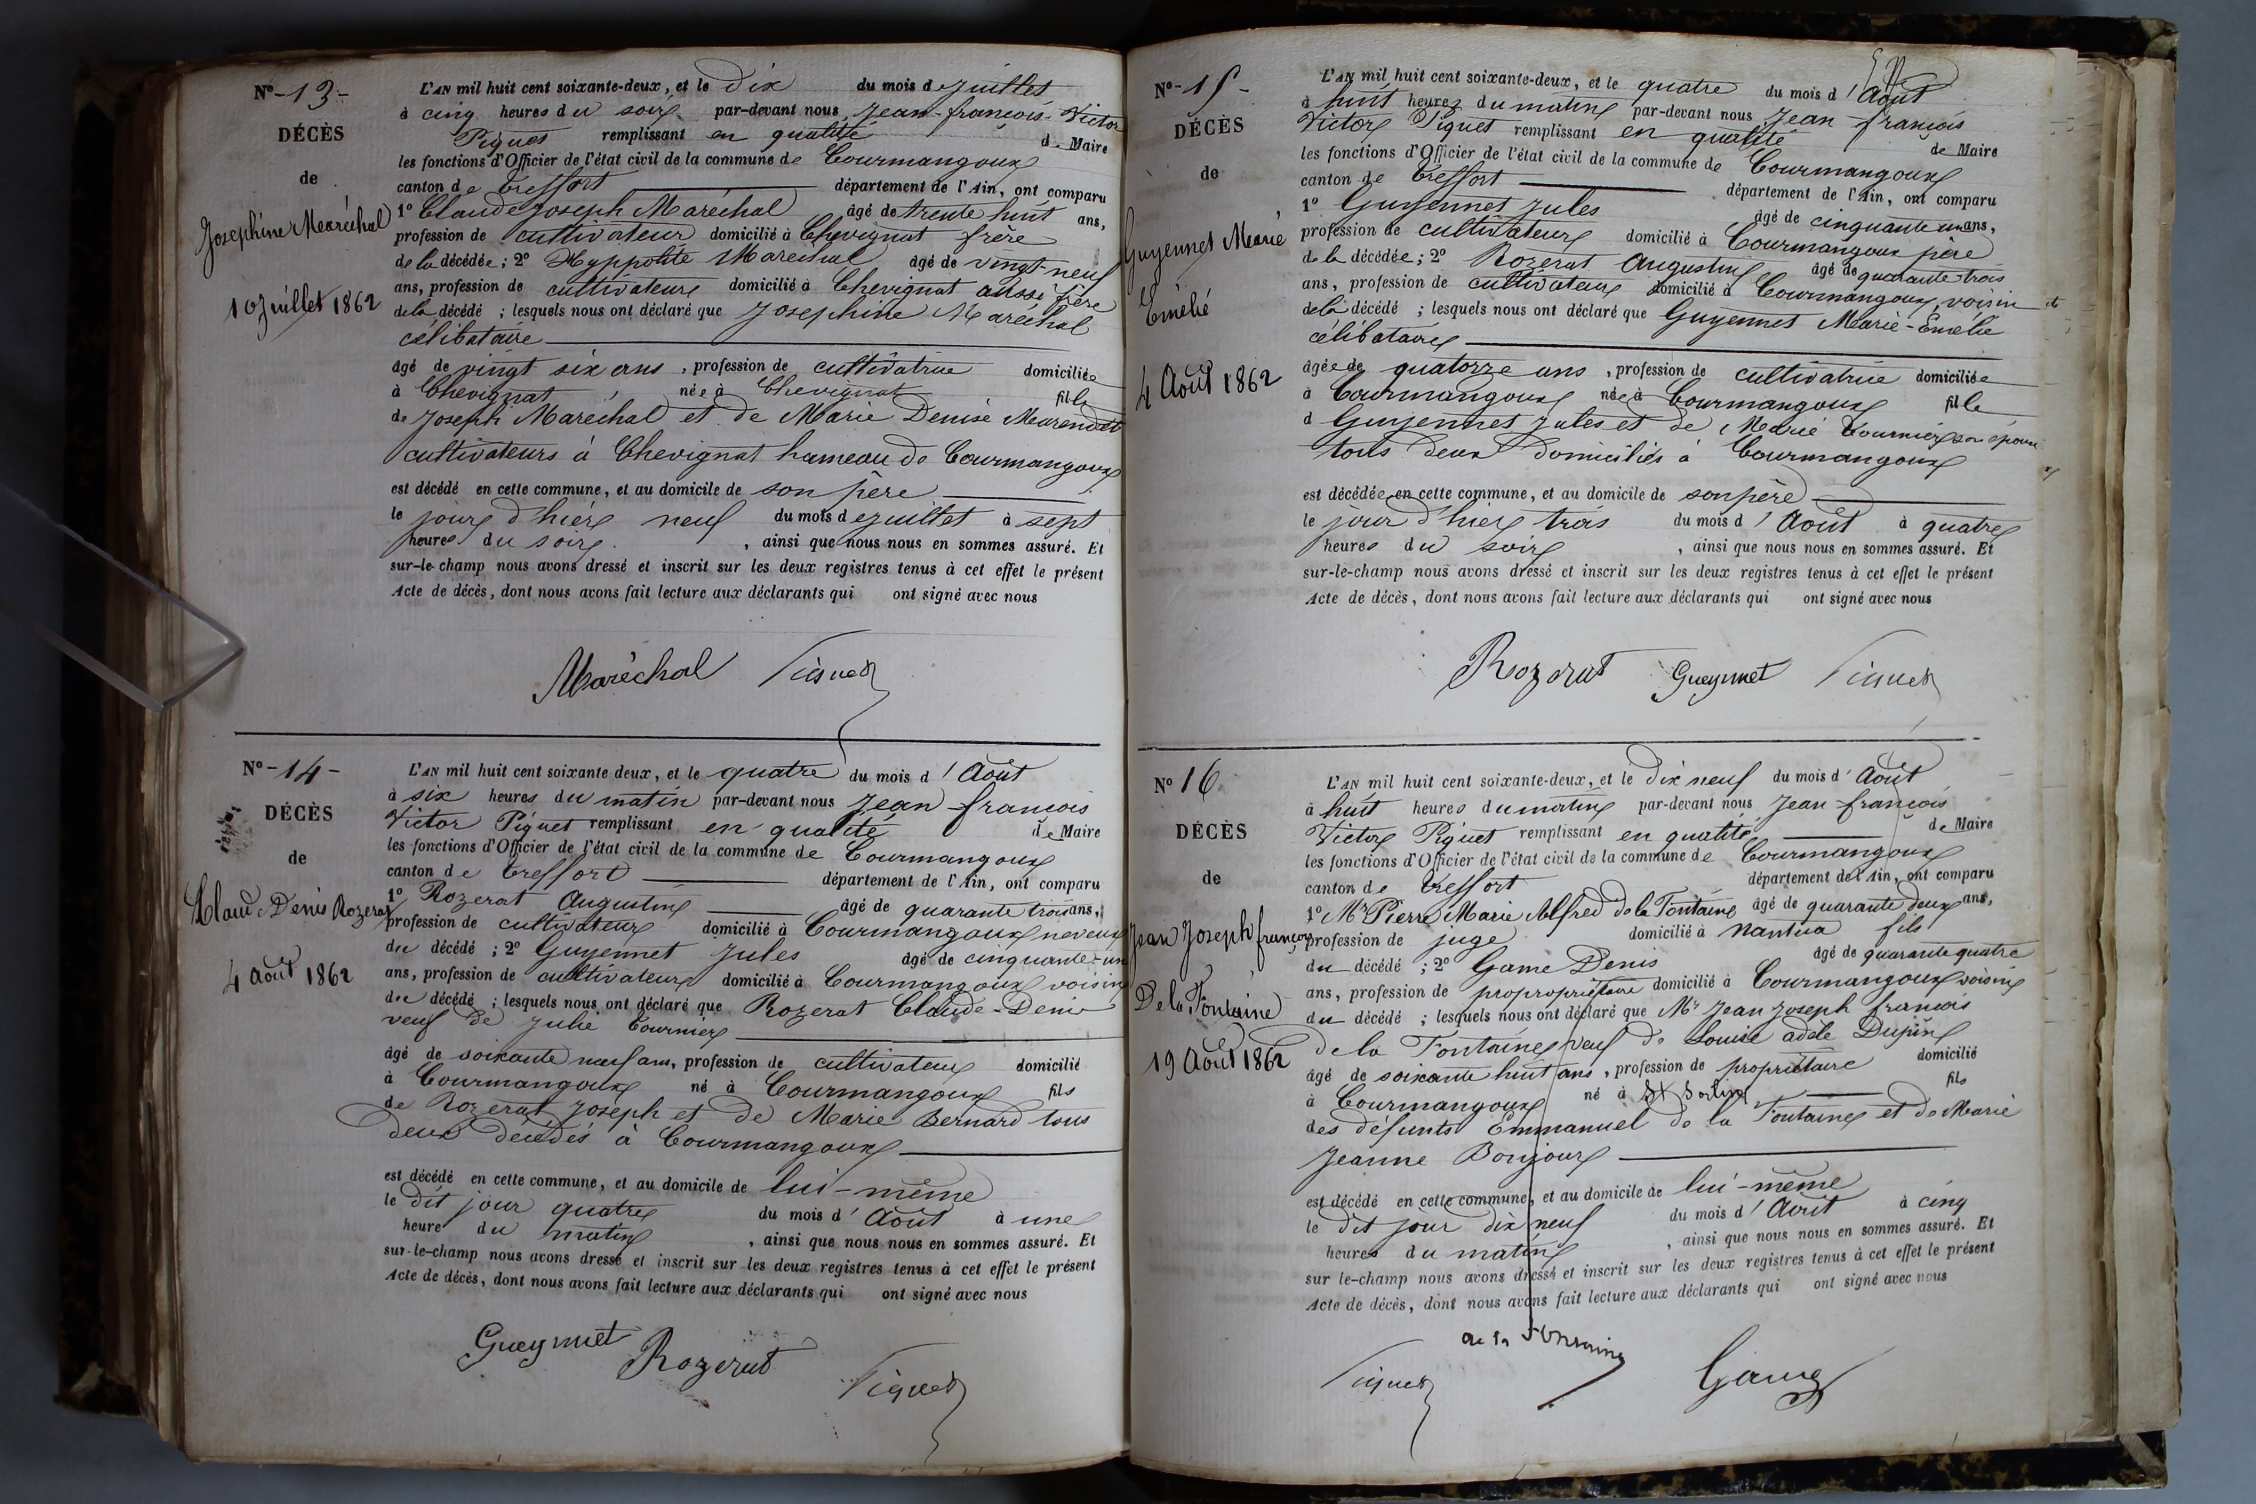 N° -13-
DÉCÈS
de
Josephine Maréchal
10 Juillet 1862
L'AN mil huit cent soixante-deux, et le Dix du mois de Juillet
à cinq heures du soir par-devant nous Jean-françois-Victor
Piquet remplissant en qualité de Maire
les fonctions d'Officier de l'état civil de la commune de Courmangoux
canton de Treffort département de l'Ain, ont comparu
1° Claude Joseph Maréchal âgé de trente huit ans,
profession de cultivateur domicilié à Chevignat frère
de la décédée; 2° Hyppolite Maréchal âgé de vingt-neuf
ans, profession de cultivateur domicilié à Chevignat aussi frère
de la décédé ; lesquels nous ont déclaré que Josephine Maréchal
célibataire
âgé de vingt six ans, profession de cultivatrice domiciliée
à Chevignat, née à Chevignat fille
de Joseph Maréchal et de Marie Denise
cultivateurs à Chevignat hameau de Courmangoux
est décédé en cette commune, et au domicile de son père
le jour d'hier neuf du mois de Juillet à sept
heures du soir, ainsi que nous nous en sommes assuré. Et
sur-le-champ nous avons dressé et inscrit sur les deux registres tenus à cet effet le présent
Acte de décès, dont nous avons fait lecture aux déclarants qui ont signé avec nous
Maréchal Piquet
N° -14-
DÉCÈS
de
Claude Denis Rozerat
4 août 1862
L'AN mil huit cent soixante deux, et le quatre du mois d'Août
à six heures du matin par-devant nous Jean françois
Victor Piquet remplissant en qualité de Maire
les fonctions d'Officier de l'état civil de la commune de Courmangoux
canton de Treffort département de l'Ain, ont comparu
1° Rozerat Augustin âgé de quarante trois ans,
profession de cultivateur domicilié à Courmangoux neveu
du décédé ; 2° Guyennet Jules âgé de cinquante-un
ans, profession de cultivateur domicilié à Courmangoux voisin
du décédé ; lesquels nous ont déclaré que Rozerat Claude-Denis
veuf de Julie Tournier
âgé de soixante neuf ans, profession de cultivateur domicilié
à Courmangoux né à Courmangoux fils
de Rozerat Joseph et de Marie Bernard tous
deux décédés à Courmangoux
est décédé en cette commune, et au domicile de lui-même
le dit jour quatre du mois d'Août à une
heure du matin, ainsi que nous nous en sommes assuré. Et
sur-le-champ nous avons dressé et inscrit sur les deux registres tenus à cet effet le présent
Acte de décès, dont nous avons fait lecture aux déclarants qui ont signé avec nous
Gueynnet Rozerat Piquet
N° -15-
DÉCÈS
de
Guyennet Marie
Emélie
4 Août 1862
L'AN mil huit cent soixante-deux, et le quatre du mois d'Août
à huit heures du matin par-devant nous Jean-françois
Victor Piquet remplissant en qualité de Maire
les fonctions d'Officier de l'état civil de la commune de Courmangoux
canton de Treffort département de l'Ain, ont comparu
1° Guyennet Jules âgé de cinquante un ans,
profession de cultivateur domicilié à Courmangoux père
de la décédée; 2° Rozerat Augustin âgé de quarante trois
ans, profession de cultivateur domicilié à Courmangoux, voisin
de la décédé ; lesquels nous ont déclaré que Guyennet Marie-Emélie
célibataire
âgée de quatorze ans, profession de cultivatrice domiciliée
à Courmangoux née à Courmangoux fille
d Guyennet Jules et de Marie Tournier son épouse
tous deux domiciliés à Courmangoux
est décédée en cette commune, et au domicile de son père
le jour d'hier trois du mois d'Août à quatre
heures du soir, ainsi que nous nous en sommes assuré. Et
sur-le-champ nous avons dressé et inscrit sur les deux registres tenus à cet effet le présent
Acte de décès, dont nous avons fait lecture aux déclarants qui ont signé avec nous
Rozerat Gueynnet Piquet
N° 16
DÉCÈS
de
Jean Joseph françois
De la Fontaine
19 Août 1862
L'AN mil huit cent soixante-deux, et le dix neuf du mois d'Août
à huit heures du matin par-devant nous Jean-françois
Victor Piquet remplissant en qualité de Maire
les fonctions d'Officier de l'état civil de la commune de Courmangoux
canton de Treffort département de l'Ain, ont comparu
1° Mr Pierre Marie Alfred de la Fontaine âgé de quarante deux ans,
profession de juge domicilié à Nantua fils
du décédé ; 2° Game Denis âgé de quarante quatre
ans, profession de propropriétaire domicilié à Courmangoux voisin
du décédé ; lesquels nous ont déclaré que Mr Jean Joseph françois
de la Fontaine veuf de Louise adèle Dupin
âgé de soixante huit ans, profession de propriétaire domicilié
à Courmangoux né à St Sorlin fils
des défunts Emmanuel de la Fontaine et de Marie
Jeanne Bonjour
est décédé en cette commune, et au domicile de lui-même
le dit jour dix neuf du mois d'Août à cinq
heures du matin, ainsi que nous nous en sommes assuré. Et
sur le-champ nous avons dressé et inscrit sur les deux registres tenus à cet effet le présent
Acte de décès, dont nous avons fait lecture aux déclarants qui ont signé avec nous
Piquet de la Fontaine Game